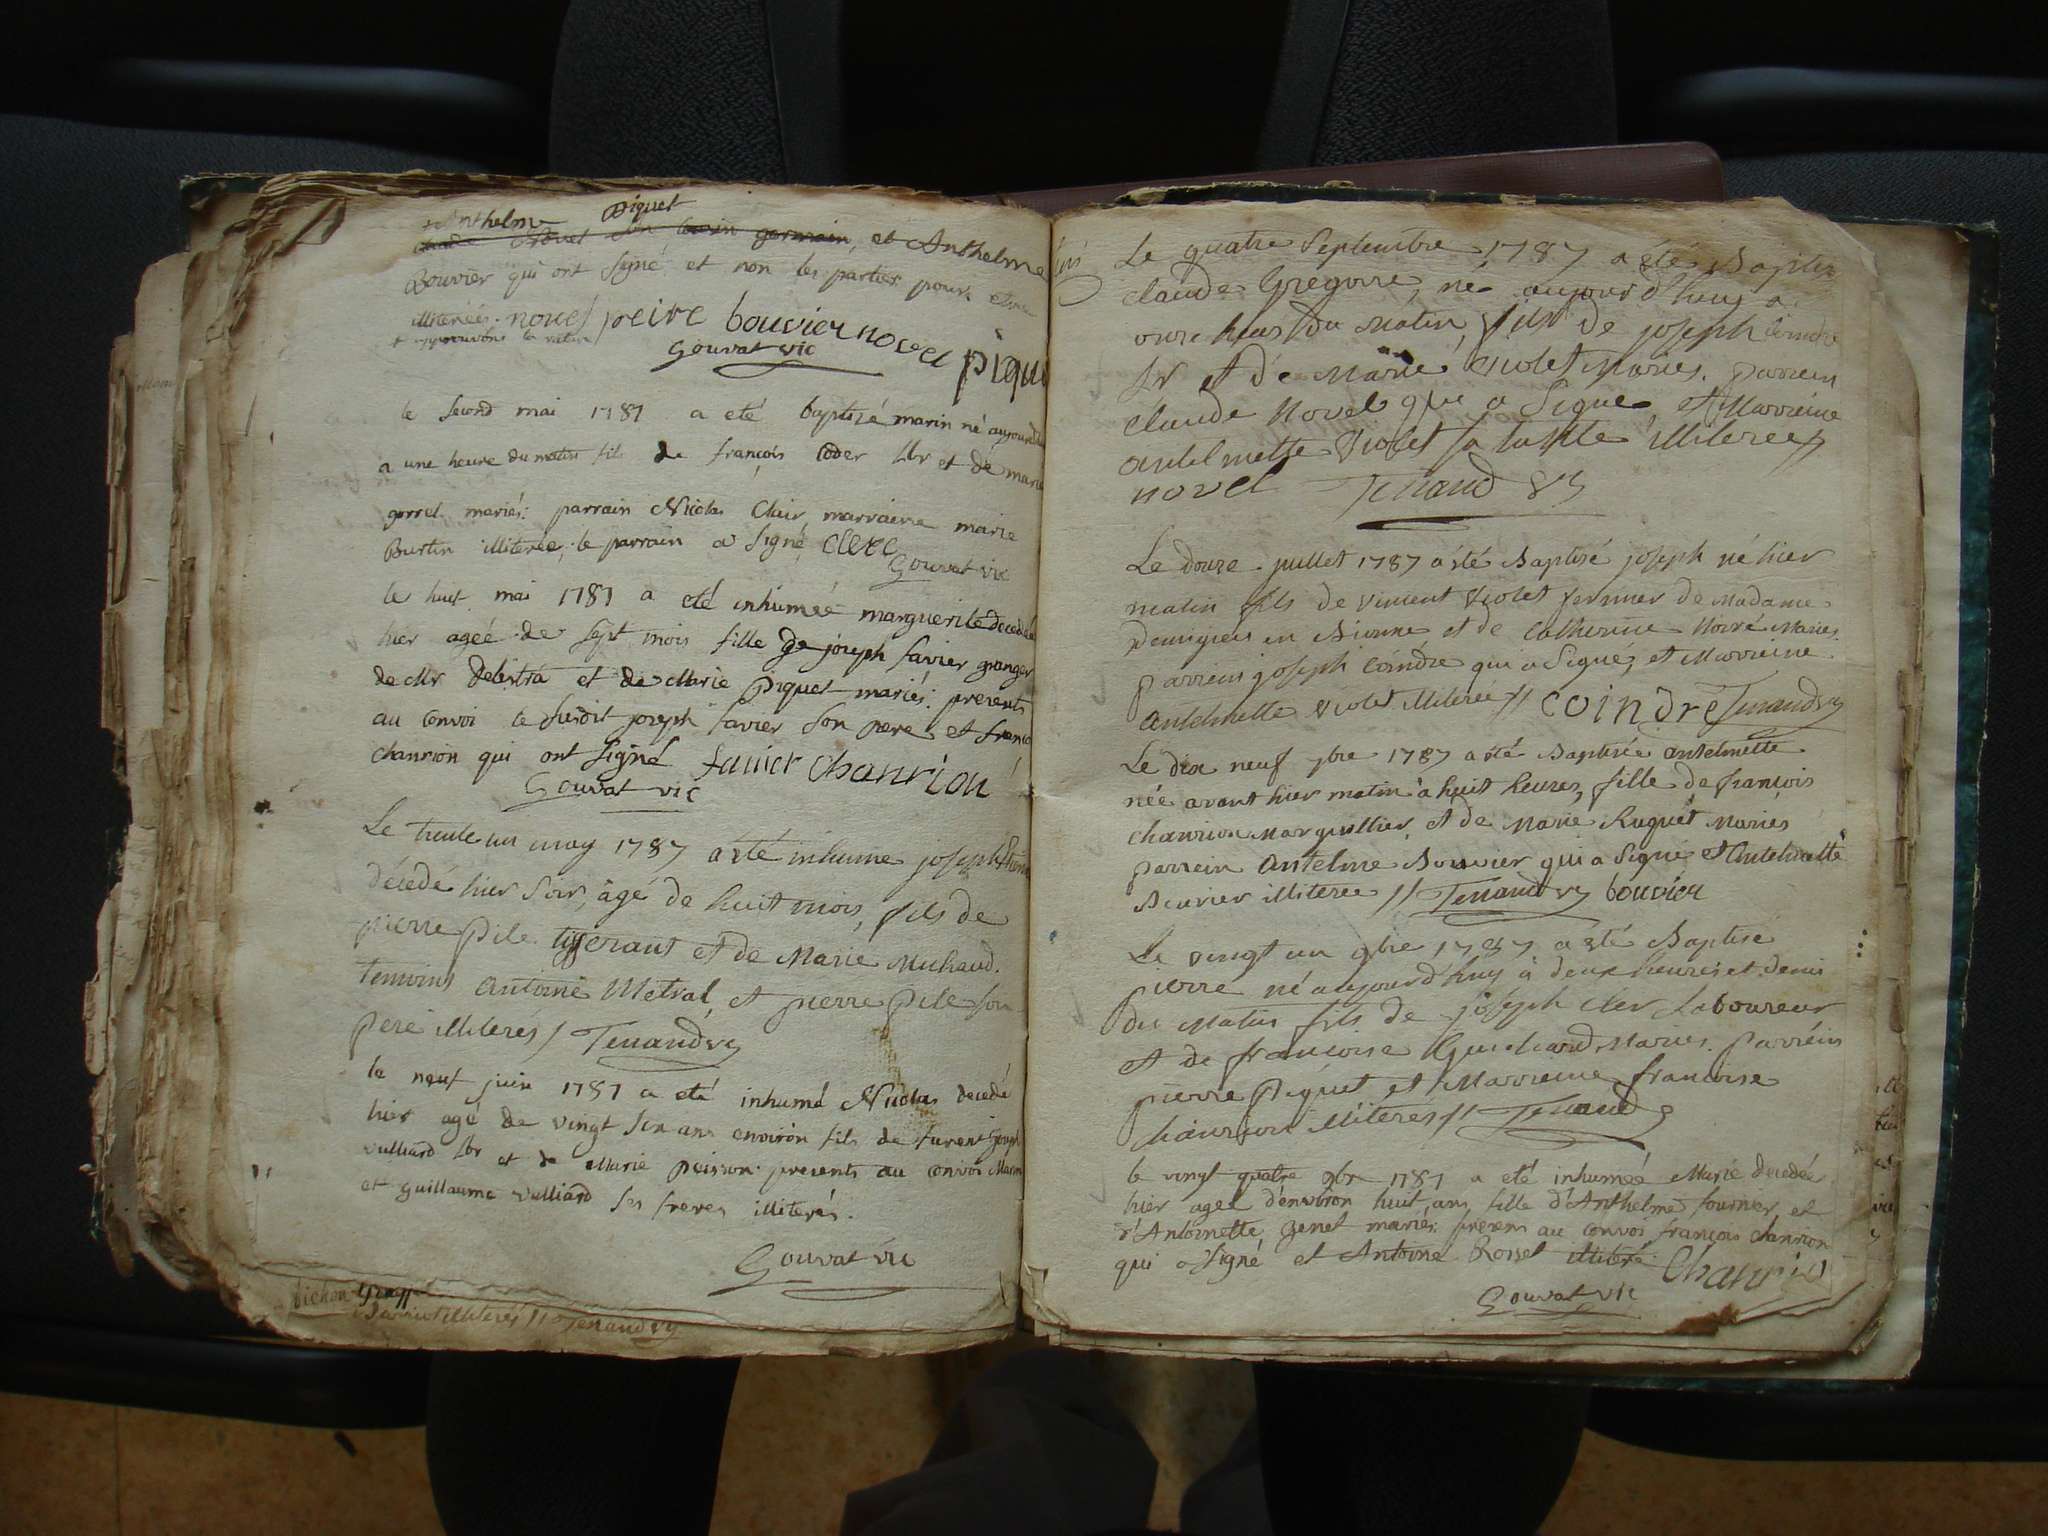 Anthelme Piquet
Claude Novel son cousin germain, et Anthelme
Bouvier qui ont signé et non les parties pour etre
illiterées. novel peire bouvier novel piqu
et approuvons la rature
Gouvat vic
le second mai 1787 a eté baptisé marin né aujourd'hui
a une heure du matin fils de françois coder lbr et de marie
gorrel mariés: parrain Nicolas Clair, marraine marie
Burtin illiterée, le parrain a signé, clerc
Gouvat vic
le huit mai 1787 a eté inhumée marguerite decedée
hier ageé de sept mois fille de joseph favier granger
de Mr Delestra et de Marie Piquet mariés: presents
au convoi le susdit joseph favier son pere et franc
chanrion qui ont signé favier chanrion
Gouvat vic
Le trente un may 1787 a été inhumé joseph
décedé hier soir, âgé de huit mois, fils de
pierre pile tisserant et de Marie Michaud.
temoins antoine Metral, et pierre pile son
pere illiterés / Tenaud vy
le neuf juin 1787 a eté inhumé Nicolas decedé
hier agé de vingt six ans environ fils de furent joseph
vulliard lbr et de Marie peisson. presents au convoi Marin
et guillaume vulliard ses freres illiterés.
Gouvat vic
illiterés // Tenaud vy
Le quatre Septembre 1787 a été Baptisé
claude Gregoire, né aujourd'huy a
onze heures du matin, fils de joseph Coindre
lbr et de Marie Violet Mariés. parrein
claude Novel qui a Signé, et Marreine
antelmette Violet sa tante illiterée //
novel Tenaud vy
Le douze juillet 1787 a été Baptisé joseph né hier
matin fils de vincent Violet fermier de Madame
en Bionne et de Catherine Moiré Mariés.
parrein joseph Coindre qui a Signé, et Marreine
antelmette Violet illiterée // coindre Tenaud vy
Le dix neuf 7bre 1787 a été Baptisée antelmette
née avant hier matin à huit heures, fille de francois
chanrion Marguillier, et de Marie Ruquet Mariés
parrein antelme Bouvier qui a Signé et antelmette
Bouvier illiterée // Tenaud vy bouvier
Le vingt un 9bre 1787 a été Baptisé
pierre né aujourd'huy à deux heures et demi
du Matin fils de joseph cler Laboureur
et de francoise Guichard Mariés. parrein
pierre piquet et Marreine francoise
chanrion illiterés // Tenaud vy
le vingt quatre 9br 1787 a eté inhumée Marie decedée
hier ageé d'environ huit ans fille d'Anthelme fournier et
d'Antoinette genet mariés: presens au convoi françois chanrion
qui a signé et Antoine Rosset illiteré. Chanrion
Gouvat vic